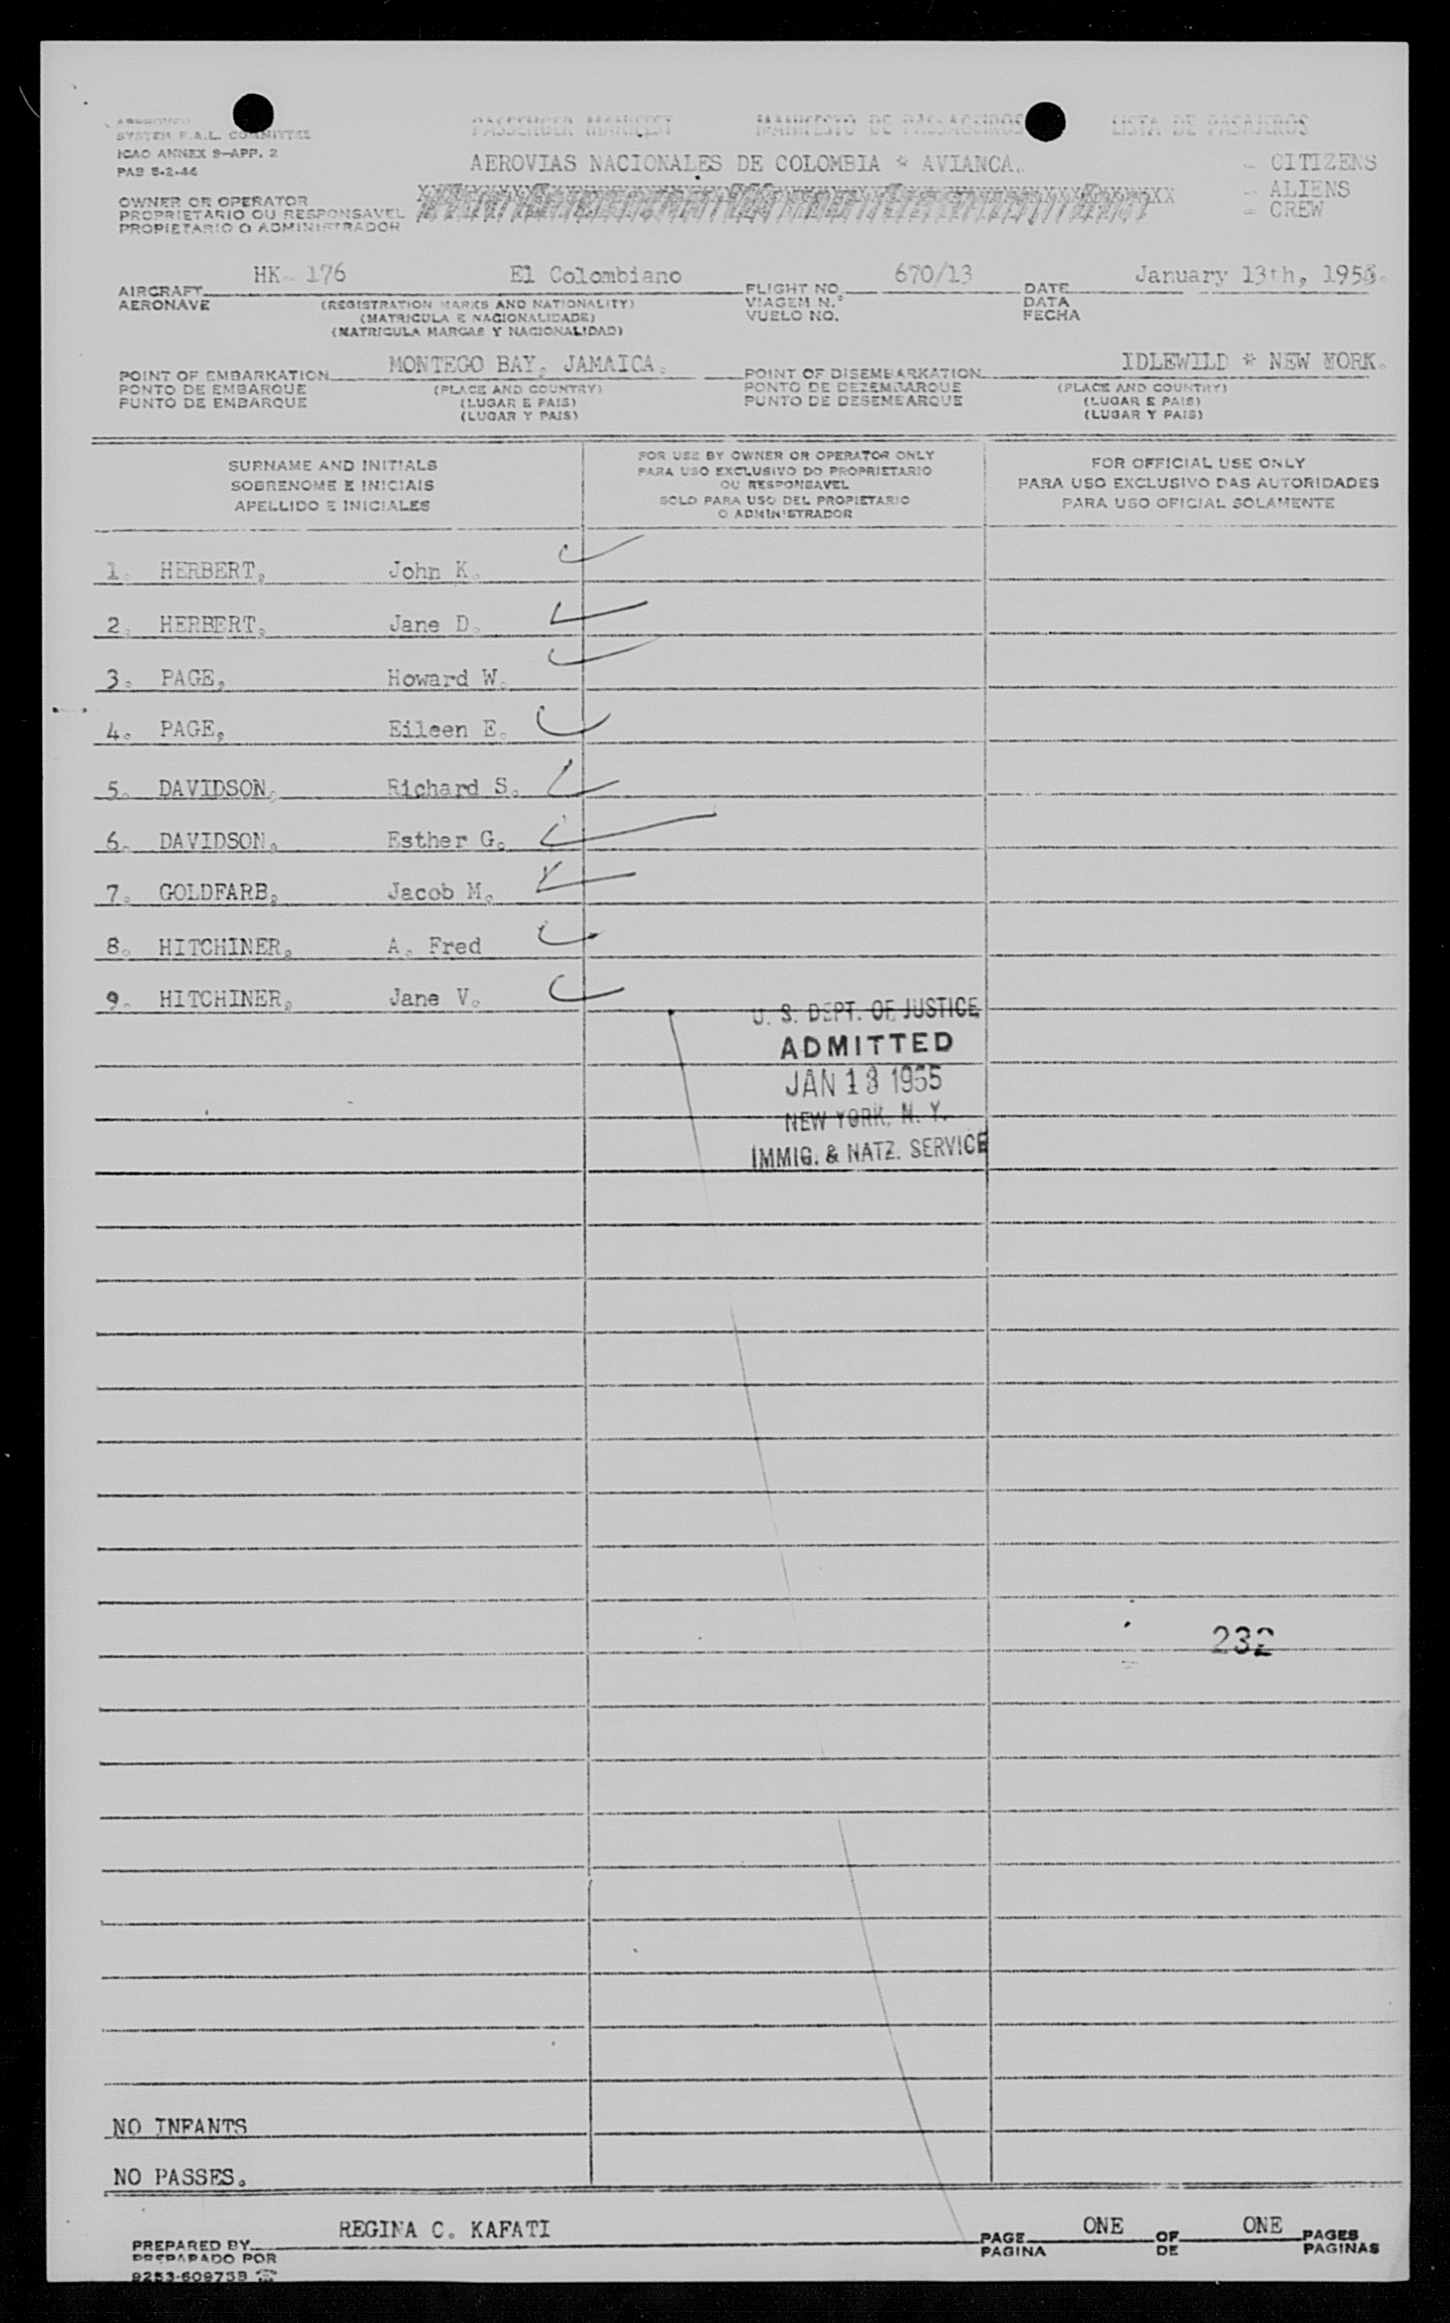 APPROVED
SYSTEM F.A.L. COMMITTEE
ICAO ANNEX 9-APP. 2
PAB 5-2-46
PASSENGER MANIFEST MANIFESTO DE PASSAGEIROS LISTA DE PASAJEROS
AEROVIAS NACIONALES DE COLOMBIA * AVIANCA.
- CITIZENS
- ALIENS
- CREW
OWNER OR OPERATOR
PROPRIETARIO OU RESPONSAVEL
PROPIETARIO O ADMINISTRADOR
AIRCRAFT HK- 176 El Colombiano FLIGHT NO. 670/13 DATE January 13th, 1955.
AERONAVE (REGISTRATION MARKS AND NATIONALITY) VIAGEM N.º DATA
(MATRICULA E NACIONALIDADE) VUELO NO. FECHA
(MATRICULA MARCAS Y NACIONALIDAD)
POINT OF EMBARKATION MONTEGO BAY, JAMAICA. POINT OF DISEMBARKATION IDLEWILD * NEW YORK.
PONTO DE EMBARQUE (PLACE AND COUNTRY) PONTO DE DEZEMBARQUE (PLACE AND COUNTRY)
PUNTO DE EMBARQUE (LUGAR E PAIS) PUNTO DE DESEMBARQUE (LUGAR E PAIS)
(LUGAR Y PAIS) (LUGAR Y PAIS)
SURNAME AND INITIALS
SOBRENOME E INICIAIS
APELLIDO E INICIALES
FOR USE BY OWNER OR OPERATOR ONLY
PARA USO EXCLUSIVO DO PROPRIETARIO
OU RESPONSAVEL
SOLO PARA USO DEL PROPIETARIO
O ADMINISTRADOR
FOR OFFICIAL USE ONLY
PARA USO EXCLUSIVO DAS AUTORIDADES
PARA USO OFICIAL SOLAMENTE
1. HERBERT, John K.
2. HERBERT, Jane D.
3. PAGE, Howard W.
4. PAGE, Eileen E.
5. DAVIDSON, Richard S.
6. DAVIDSON, Esther G.
7. GOLDFARB, Jacob M.
8. HITCHINER, A. Fred
9. HITCHINER, Jane V.
U. S. DEPT. OF JUSTICE
ADMITTED
JAN 13 1955
NEW YORK, N. Y.
IMMIG. & NATZ. SERVICE
232
NO INFANTS
NO PASSES.
PREPARED BY REGINA C. KAFATI PAGE ONE OF ONE PAGES
PREPARADO POR PAGINA DE PAGINAS
9253-60975B